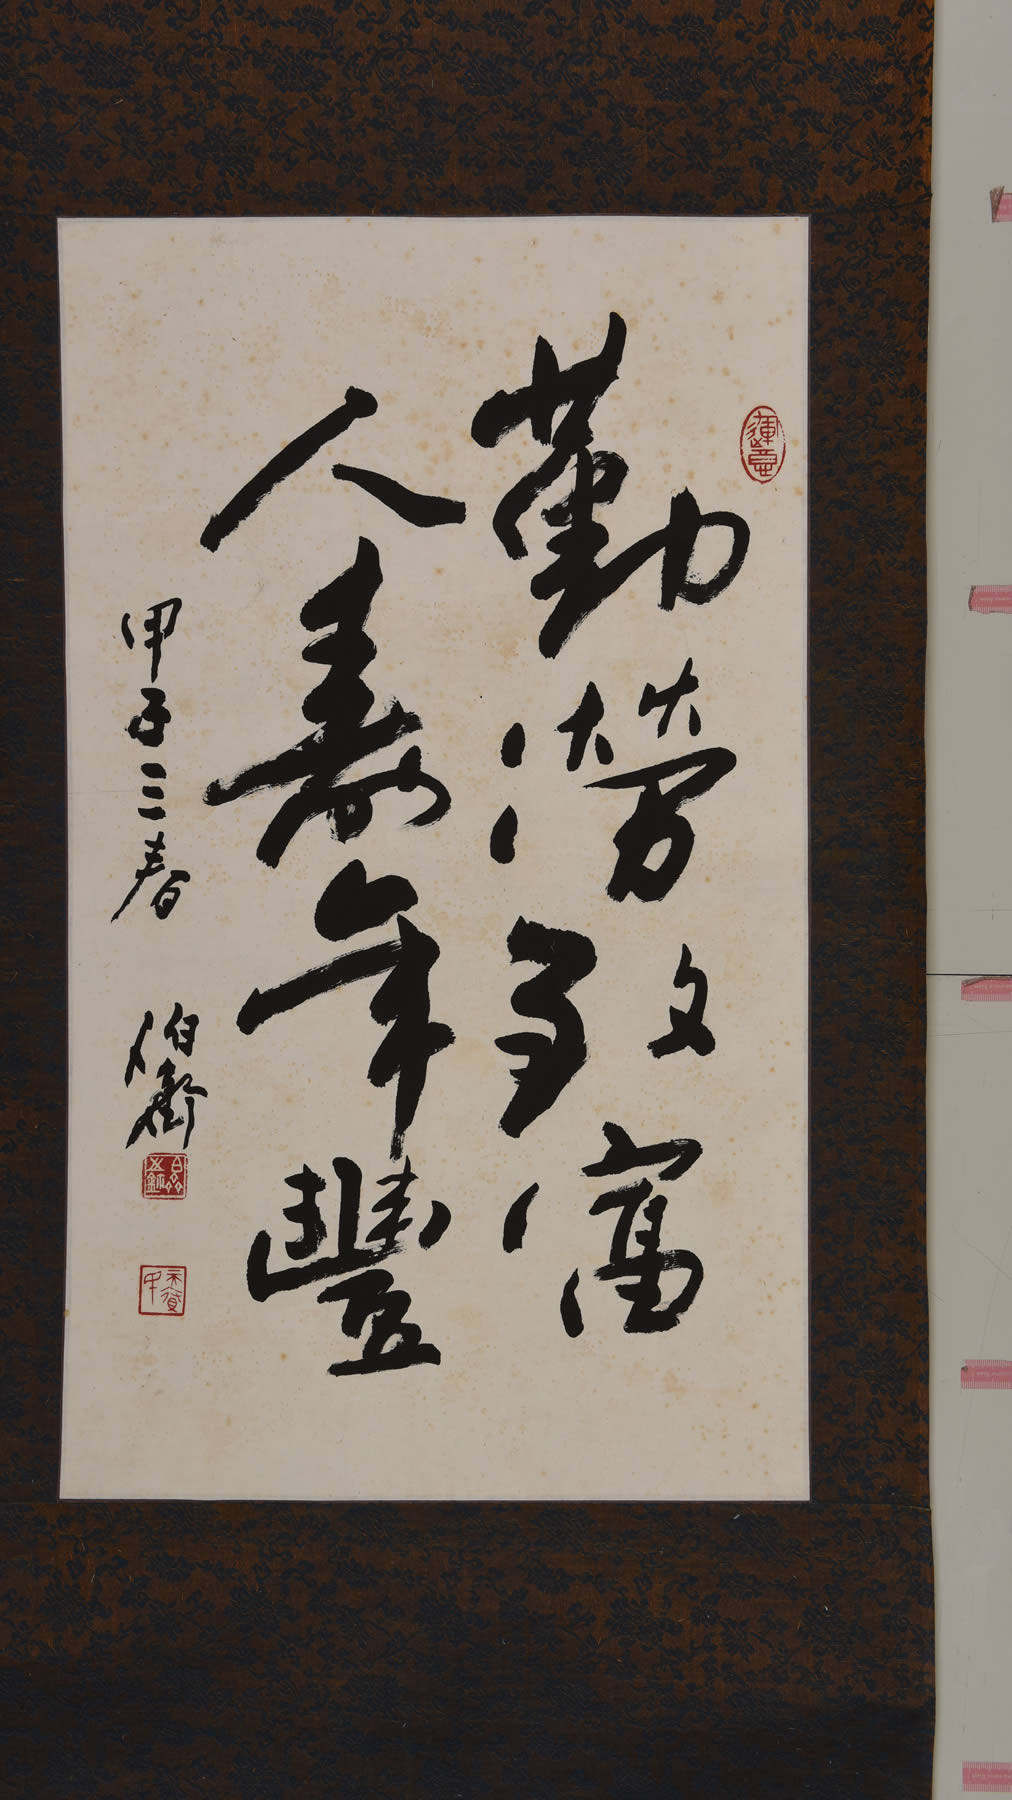 勤勞致富
人壽年豐
甲子三春